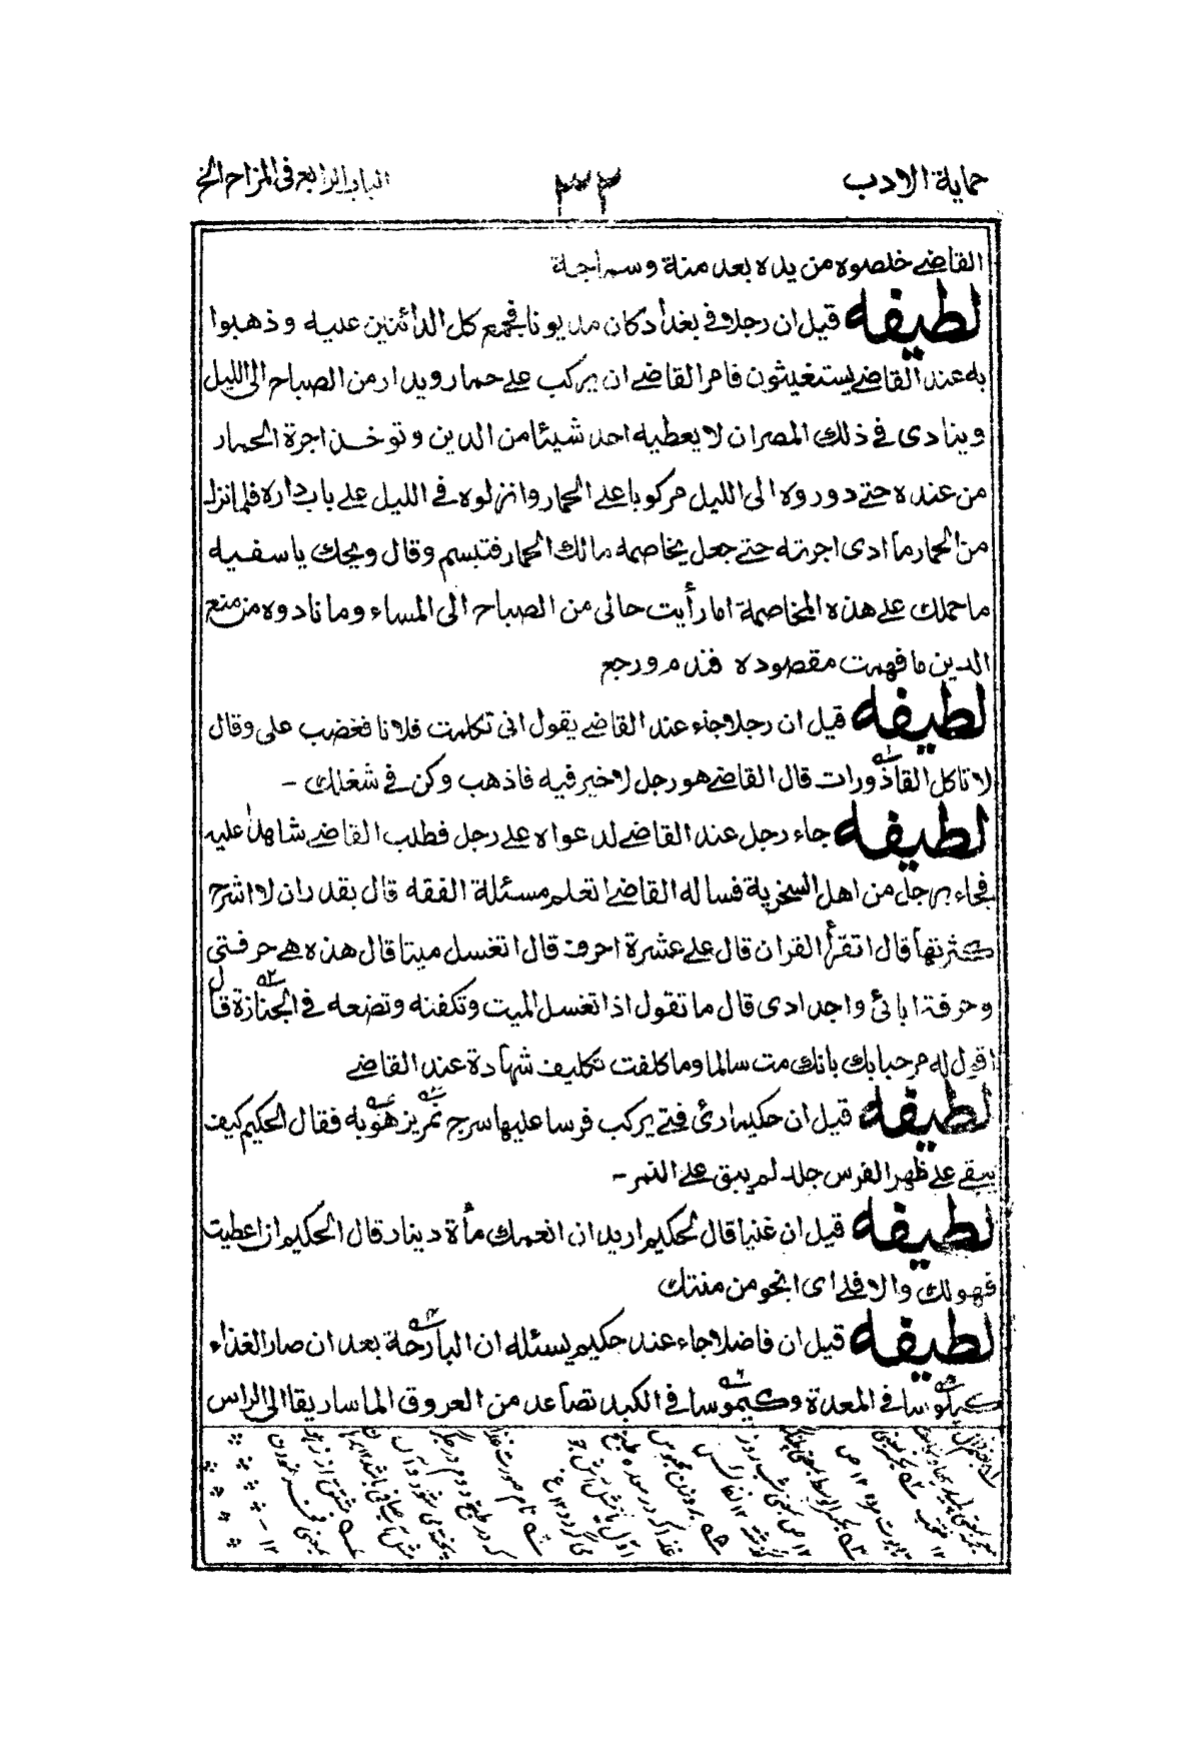 حماية الادب ٣٣ الباب الرابع فى المزاح الخ
القاضے خلصوه من يده بعد منة وسماجة
لطيفه قيل ان رجلا فے بغداد كان مديونا فجمع كل الدائنين عليه وذهبوا
به عند القاضے يستغيثون فامر القاضے ان يركب علے حمار ويدار من الصباح الى الليل
وينادى فے ذلك المصر ان لا يعطيه احد شيئا من الدين وتوخذ اجرة الحمار
من عنده حتے دوروه الى الليل مركوبا علے الحمار وانزلوه فے الليل علے باب داره فلما نزل
من الحمار ما ادى اجرته حتے جعل يخاصمه مالك الحمار فتبسم وقال ويحك يا سفيه
ما حملك علے هذه المخاصمة اما رأيت حالى من الصباح الى المساء وما نادوه من منع
الدين ما فهمت مقصوده فندم ورجع
لطيفه قيل ان رجلا جاء عند القاضے يقول انى تكلمت فلانا فغضب على وقال
لا تاكل القاذورات قال القاضے هو رجل لا خير فيه فاذهب وكن فے شغلك -
لطيفه جاء رجل عند القاضے لدعواه علے رجل فطلب القاضے شاهدا عليه
فجاء برجل من اهل السخرية فساله القاضے اتعلم مسئلة الفقه قال بقدر ان لا اشرح
كثرتها قال اتقرأ القران قال علے عشرة احرف قال اتغسل ميتا قال هذه هے حرفتى
وحرفة ابائى واجدادى قال ما تقول اذا تغسل الميت وتكفنه وتضعه فے الجنازة قال
اقول له مرحبا بك بانك مت سالما وما كلفت تكليف شهادة عند القاضے
لطيفه قيل ان حكيما رئ فتے يركب فرسا عليها سرج نمر يزهو به فقال الحكيم كيف
يبقے علے ظهر الفرس جلد لم يبق علے النمر -
لطيفه قيل ان غنيا قال لحكيم اريد ان انعمك مأة دينار قال الحكيم ان اعطيت
فهو لك والا فلے اى انجو من منتك
لطيفه قيل ان فاضلا جاء عند حكيم يسئله ان البارحة بعد ان صار الغذاء
كيلوسا فے المعدة وكيموسا فے الكبد تصاعد من العروق الماساريقا الى الراس